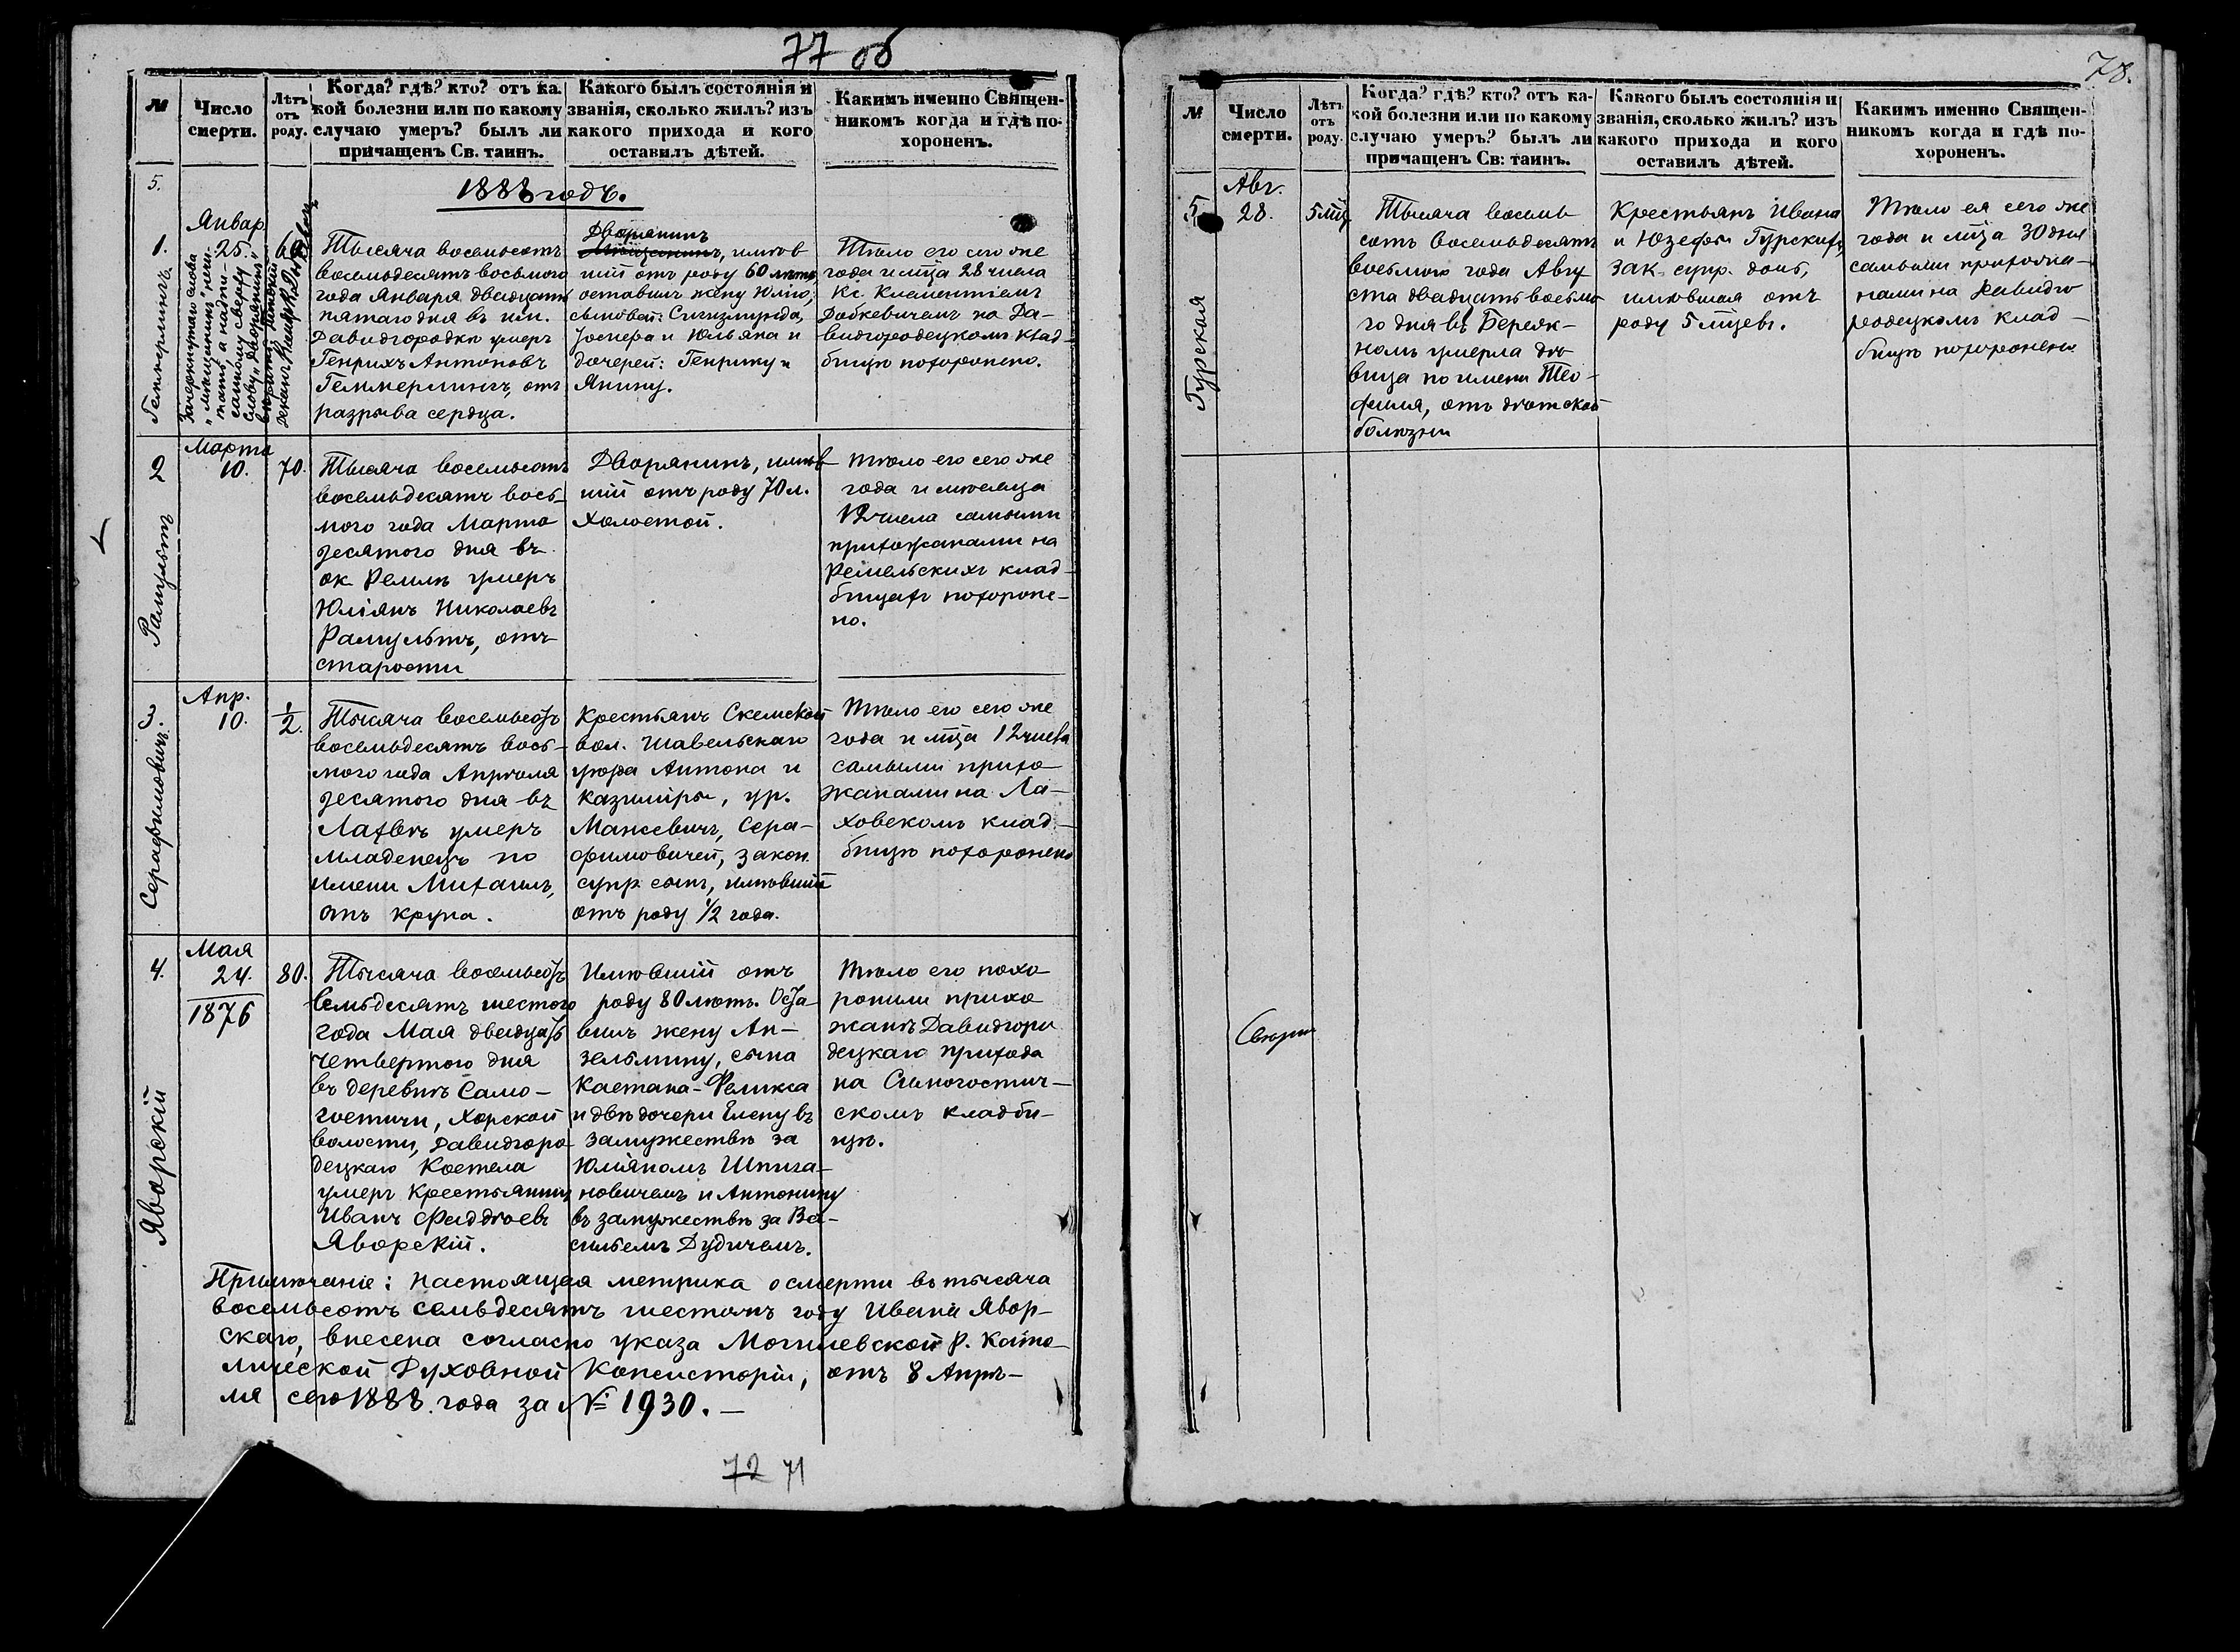 77 об
№
Число
смерти.
Лѣтъ
отъ
роду.
Когда? гдѣ? кто? отъ ка-
кой болезни или по какому
случаю умеръ? былъ ли
причащенъ Св. таинъ.
Какого былъ состоянія и
званія, сколько жилъ? изъ
какого прихода и кого
оставилъ дѣтей.
Какимъ именно Священ-
никомъ когда и гдѣ по-
хороненъ.
5.
1888 годъ.
1.
Геммерлингъ
Январ
25.
Зачеркнутаго слова
"мѣщанинъ" нечи-
тать, а надпи-
санному сверху
слову "Дворянинъ"
60
Тысяча восемьсотъ
восемьдесятъ восьмого
года Января двадцать
пятаго дня въ им.
Давидгородкѣ умеръ
Генрихъ Антоновъ
Геммерлингъ, отъ
разрыва сердца.
Дворянинъ
Мѣщанинъ, имѣв
шій отъ роду 60 лѣтъ,
оставилъ жену Юлію,
сыновей: Сигизмунда,
Іосифа и Юльяна и
дочерей: Генрику и
Янину.
Тѣло его сего же
года и м̃ца 28 числа
Кс. Клементіемъ
на Да-
видгородецкомъ клад-
бищѣ похоронено.
2
Рамультъ
Марта
10.
70.
Тысяча восемьсотъ
восемьдесятъ вось-
мого года Марта
десятого дня въ
ок. Ремлѣ умеръ
Юліянъ Николаевъ
Рамультъ, отъ
старости
Дворянинъ, имѣв
шій отъ роду 70 л.
Холостой.
Тѣло его сего же
года и мѣсяца
12 числа самыми
прихожанами на
Ремельскихъ клад-
бищахъ похороне-
но.
3.
Серафимовичъ.
Апр.
10.
1/2.
Тысяча восемьсотъ
восемьдесятъ вось-
мого года Апрѣля
десятого дня въ
Лахвѣ умеръ
младенецъ по
имени Михаилъ,
отъ крупа.
Крестьянъ Скемской
вол. Шавельскаго
уѣзда Антона и
Казиміры, ур.
Манкевичъ, Сера-
фимовичей, закон.
супр. сынъ, имѣвшій
отъ роду 1/2 года.
Тѣло его сего же
года и м̃ца 12 числа
самыми прихо
жанами на Ла-
ховскомъ клад-
бищѣ похоронено
4.
Яворскій
Мая
24.
1876
80.
Тысяча восемьсотъ
семьдесятъ шестого
года Мая двадцать
четвертого дня
въ деревнѣ Само-
гостичи, Хорской
волости, Давидгоро
децкаго Костела
умеръ Крестьянинъ
Иванъ Фаддѣевъ
Яворскій.
Имѣвшій отъ
роду 80 лѣтъ. Оста-
вилъ жену Ан-
зельмину, сына
Каетана-Феликса
и двѣ дочери Елену въ
замужествѣ за
Юліяномъ Шпига-
новичемъ и Антонину
въ замужествѣ за Ва-
сильемъ Дудичемъ.
Тѣло его похо
ронили прихо
жане Давидгоро
децкаго прихода
на Самогостич-
скомъ кладби-
щѣ.
Примѣчаніе: Настоящая метрика о смерти въ тысяча
восемьсотъ семьдесятъ шестомъ году Ивана Явор-
скаго, внесена согласно указа Могилевской Р. Като-
лической Духовной Консисторіи, отъ 8 Апрѣ-
ля сего 1888 года за № 1930. —
72 71
78.
№
Число
смерти.
Лѣтъ
отъ
роду.
Когда? гдѣ? кто? отъ ка-
кой болезни или по какому
случаю умеръ? былъ ли
причащенъ Св: таинъ.
Какого былъ состоянія и
званія, сколько жилъ? изъ
какого прихода и кого
оставилъ дѣтей.
Какимъ именно Священ-
никомъ когда и гдѣ по-
хороненъ.
5
Гурская
Авг.
28.
5 м̃ц
Тысяча восемь
сотъ восемьдесятъ
восьмого года Авгу
ста двадцать восьмо
го дня въ Береж-
номъ умерла дѣ
вица по имени Тео-
филя, отъ дѣтской
болѣзни
Крестьянъ Ивана
и Юзефы Гурскихъ,
зак. супр. дочь,
имѣвшая отъ
роду 5 м̃цевъ.
Тѣло ея сего же
года и м̃ца 30 дня
самыми прихожа-
нами на Давидго
родецкомъ клад-
бищѣ похоронено